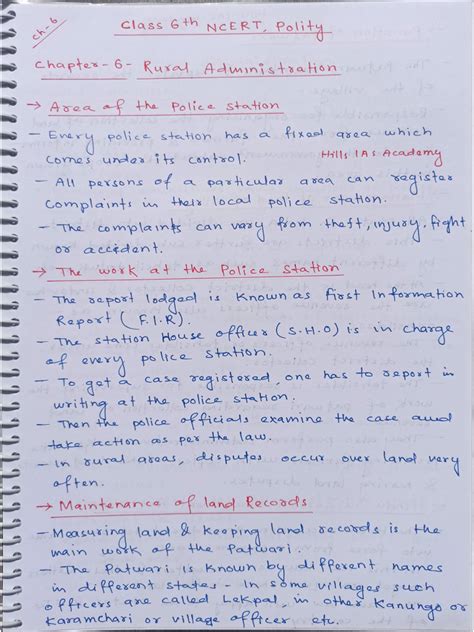 ch-6
Class 6th NCERT, Polity
Chapter-6- Rural Administration
→ Area of the Police station
- Every police station has a fixed area which
comes under its control.
Hills IAs Academy
- All persons of a particular area can register
Complaints in their local police station.
- The complaints can vary from theft, injury, fight
or accident.
→ The work at the Police station
- The report lodged is known as first Information
Report (F.I.R).
- The station House officer (S.H.O) is in charge
of every police station.
- To get a case registered, one has to report in
writing at the police station.
- Then the police officials examine the case and
take action as per the law.
- In rural areas, disputes occur over land very
often.
→ Maintenance of land Records
- Measuring land & keeping land records is the
main work of the Patwari.
- The Patwari is known by different names
in different states - In some villages such
officers are called Lekpal, in other Kanungo or
Karamchari or village officer etc.